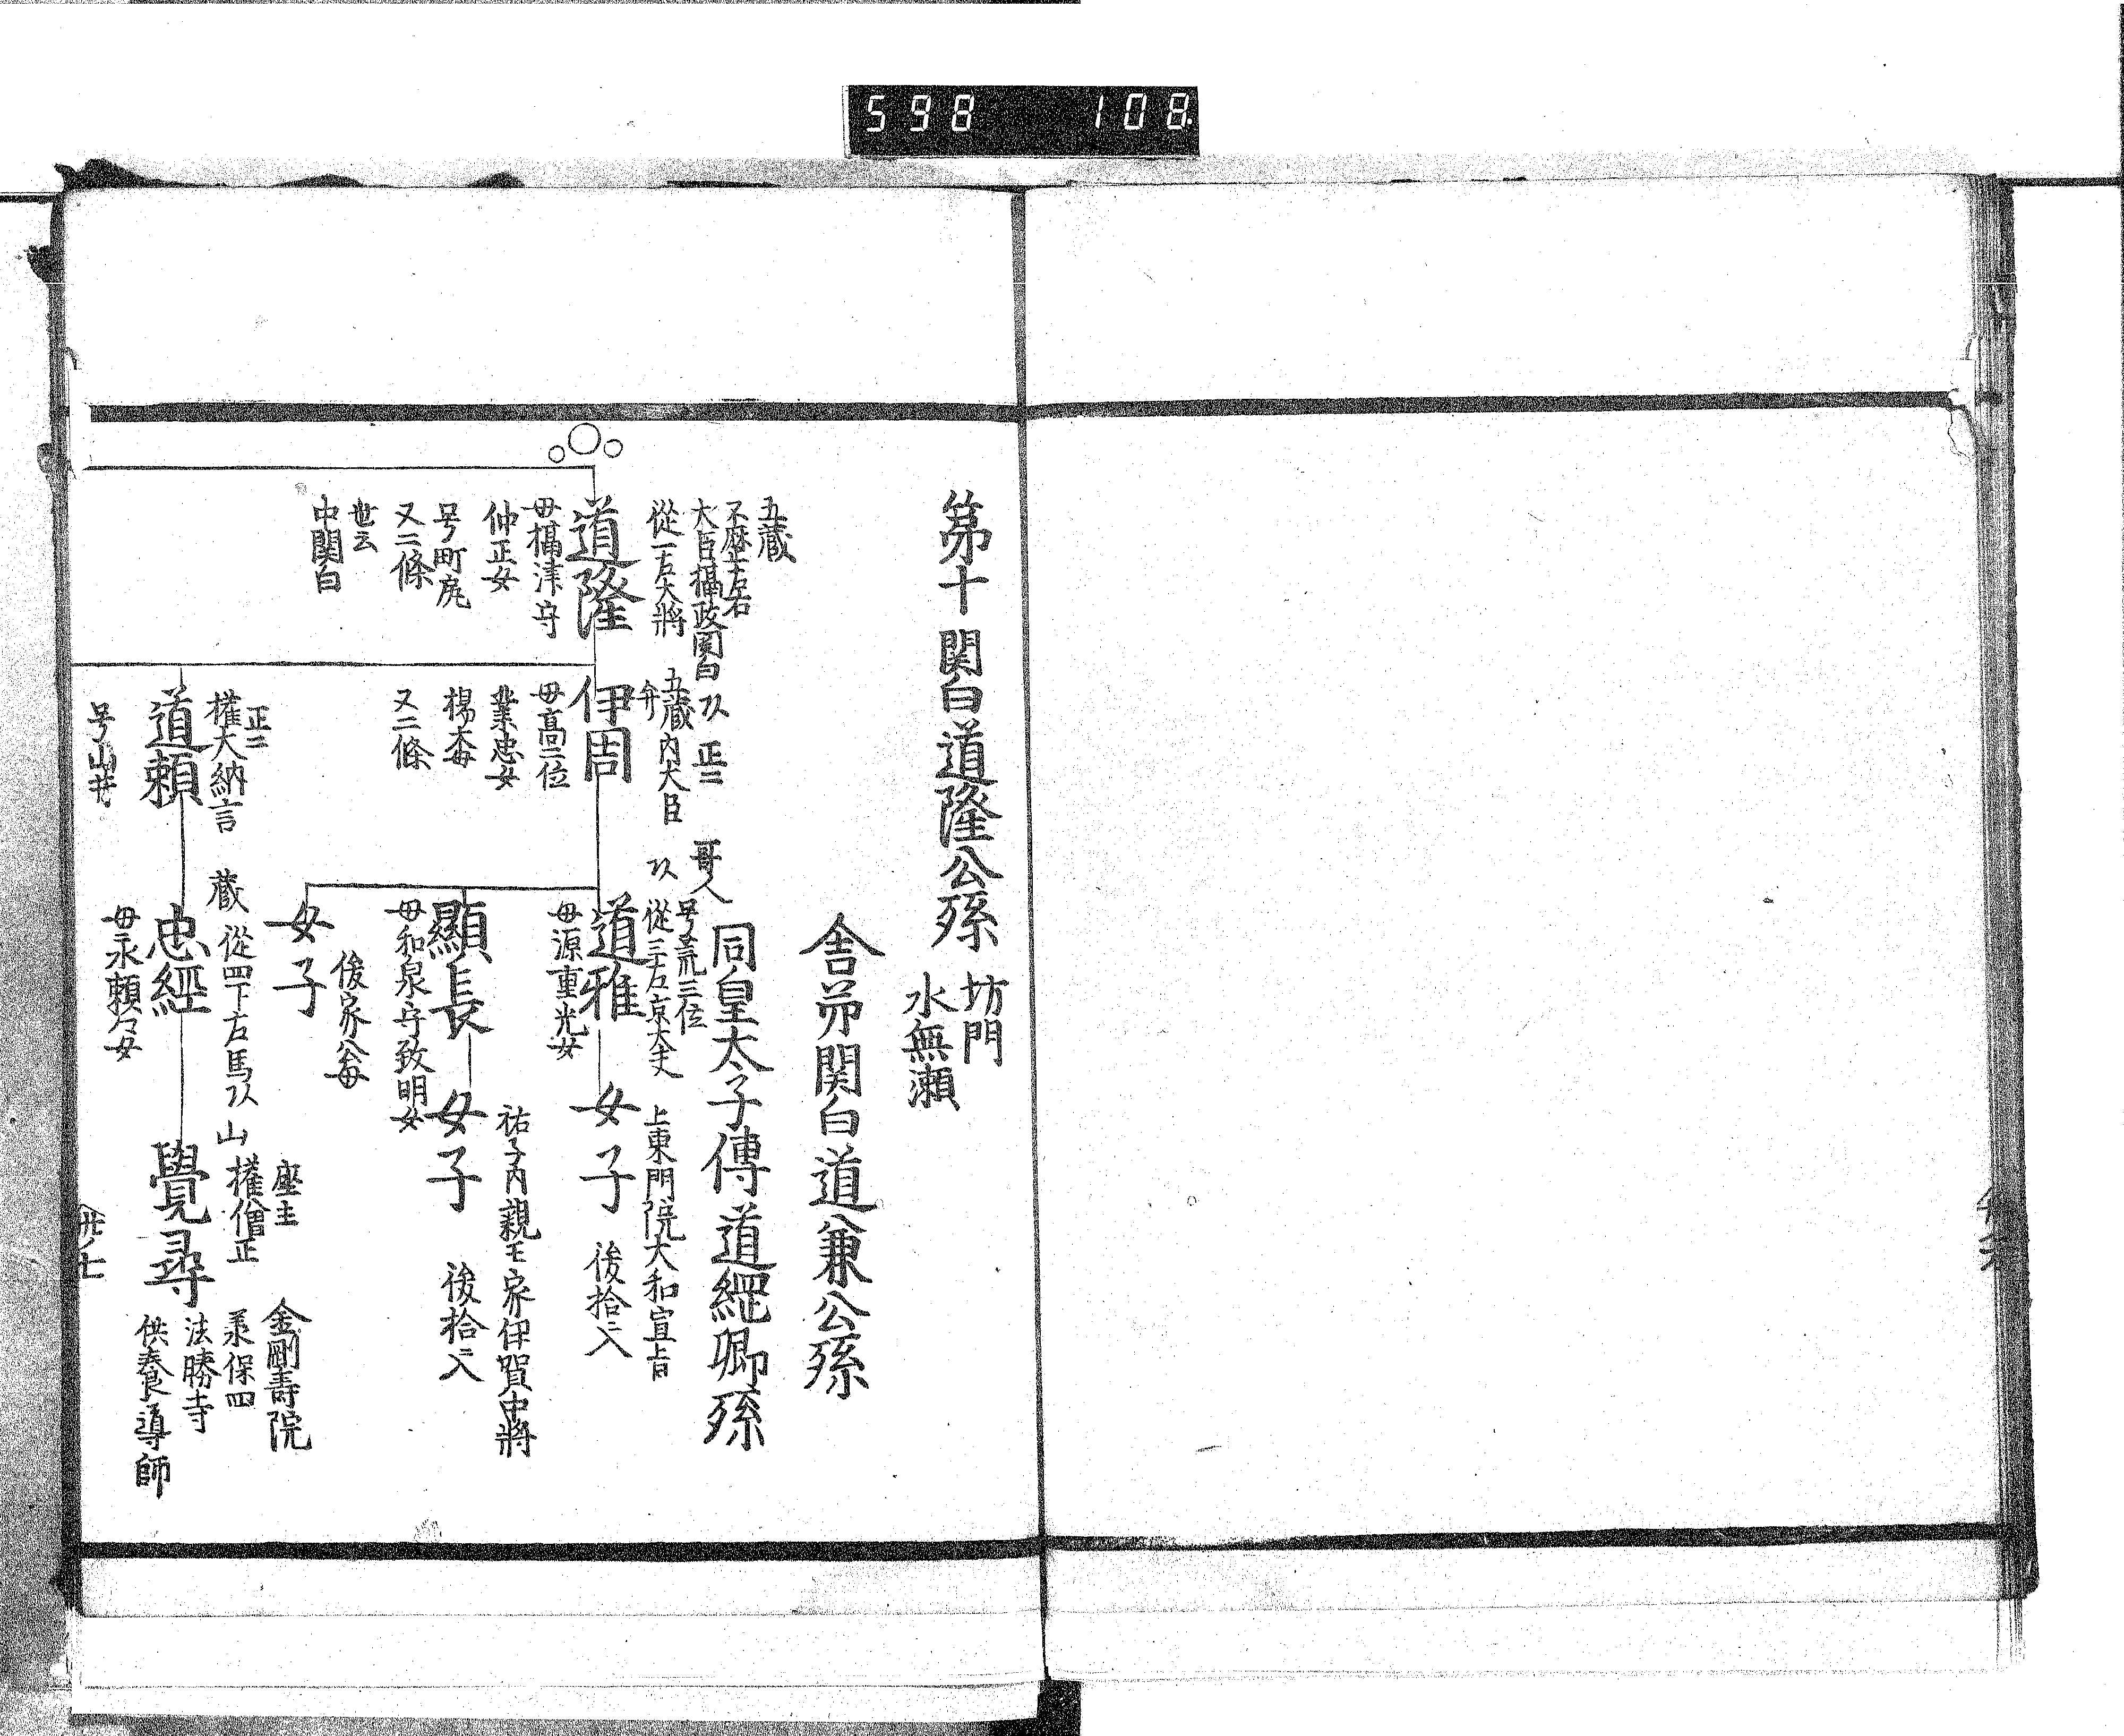 598 108
第十 関白道隆公孫
坊門
水無瀬
舎弟関白道兼公孫
同皇太子傳道綱卿孫
五蔵
不歴左右
大臣攝政関白
從一左大将
道隆
母攝津守
仲正女
号町尻
又二條
世云
中関白
正二
哥人
五蔵内大臣
弁
伊周
母高二位
業忠女
又二條
号荒三位
從三左京大夫
道雅
母源重光女
上東門院大和宣旨
女子 後拾入
顯長
母和泉守致明女
祐子内親王家伊賀中将
女子 後拾入
女子
後家公母
正二
權大納言
道頼
号山井
蔵
從四下右馬
忠經
母永頼女
山
座主
權僧正
覺尋
金剛壽院
承保四
法勝寺
供養導師